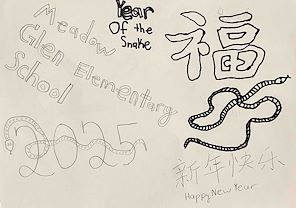 Meadow
Glen Elementary
School
Year
Of the
Snake
福
2025
新年快乐
Happy New Year